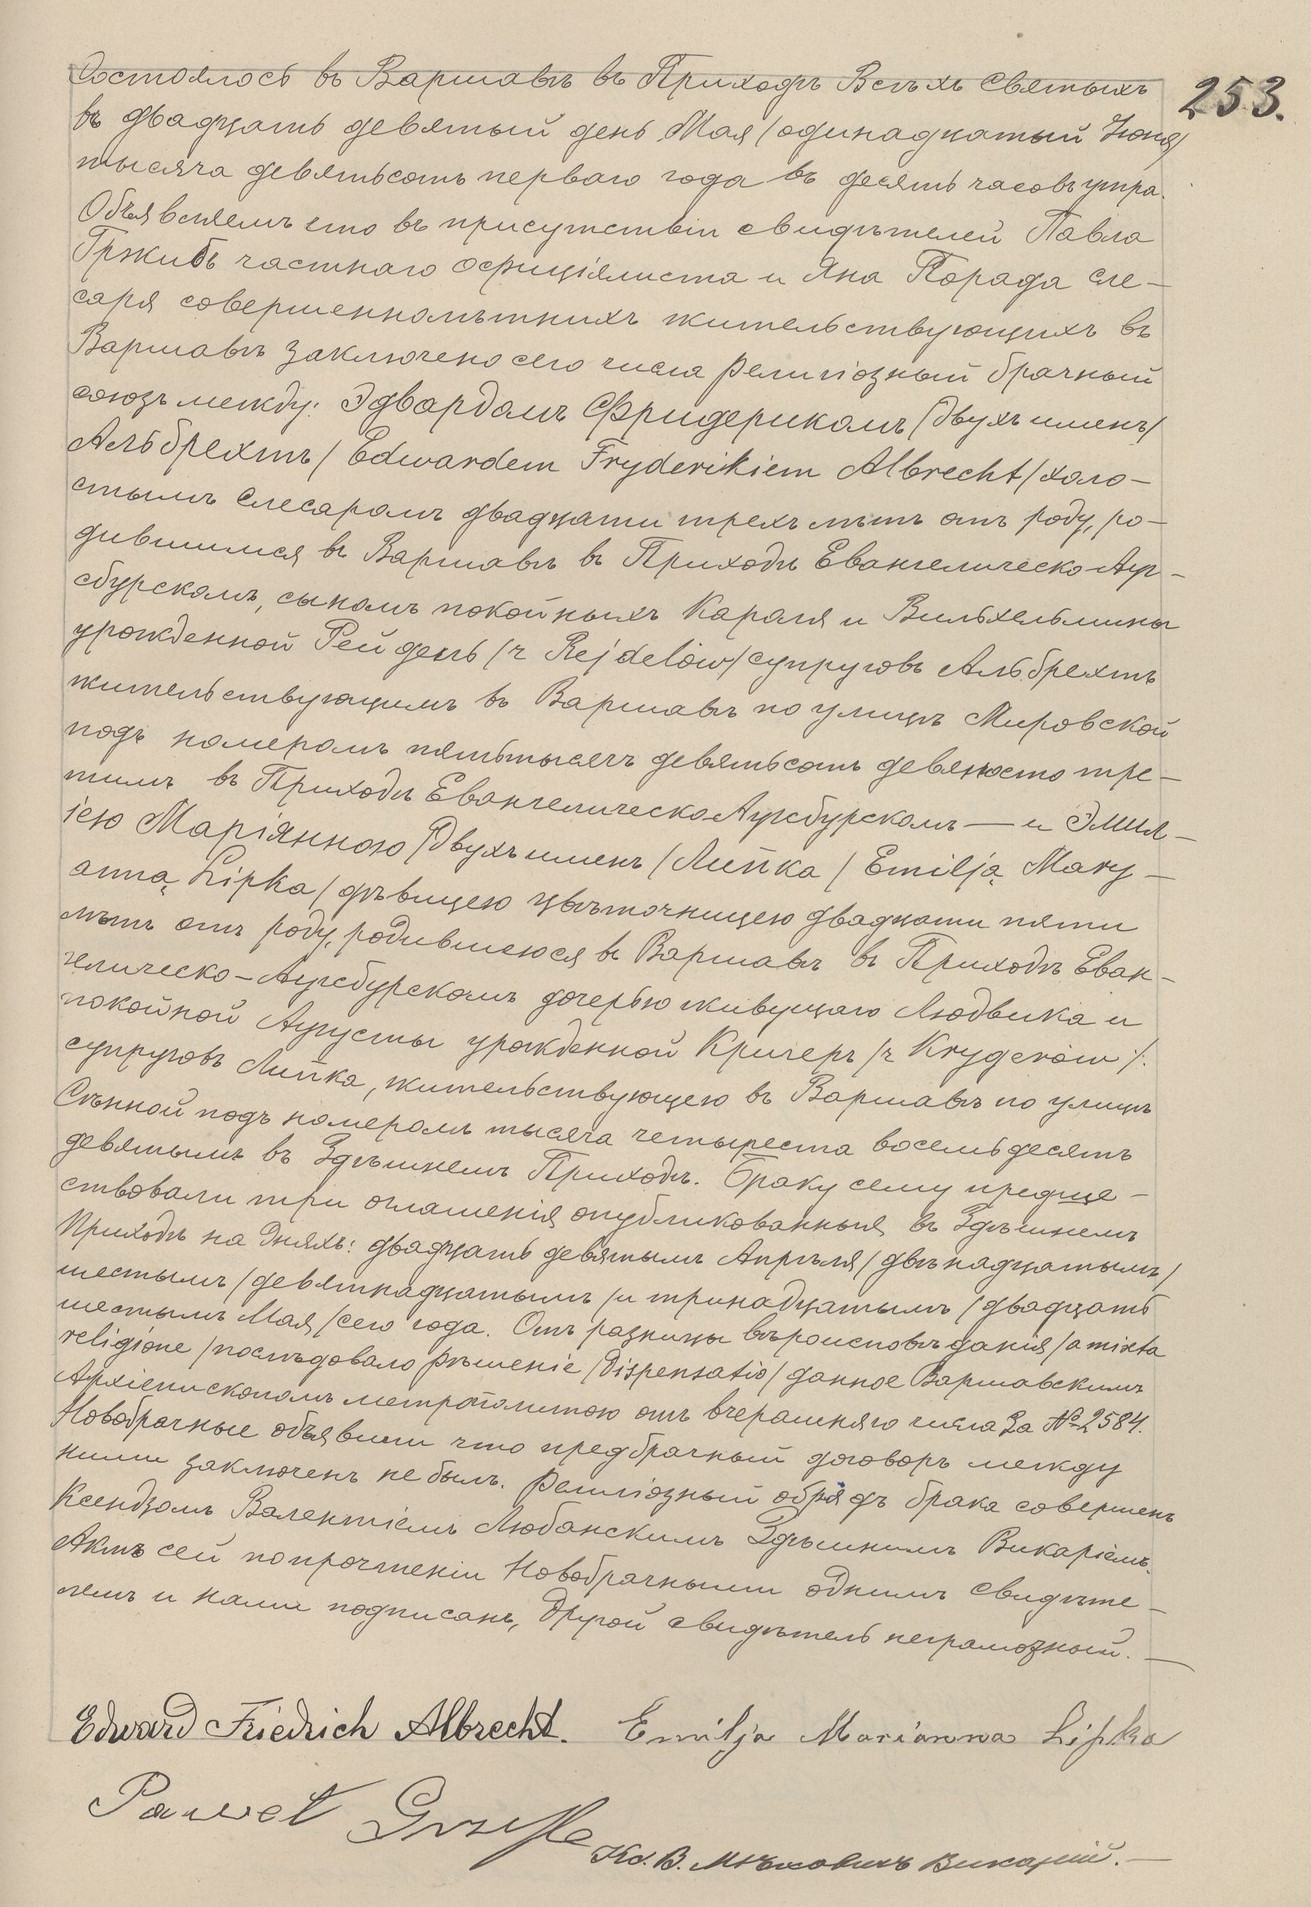 Состоялось въ Варшавѣ въ Приходѣ Всѣхъ Святыхъ
253.
въ двадцать девятый день Мая /одинадцатый Іюня/
тысяча девятьсотъ перваго года въ десять часовъ утра.
Объявляемъ что въ присутствіи свидѣтелей Павла
Гржибъ частнаго оффиціялиста и Яна Порада сле-
саря совершеннолѣтнихъ жительствующихъ въ
Варшавѣ заключено сего числа религіозный брачный
союзъ между: Эдвардомъ Фридерикомъ /двухъ именъ/
Альбрехтъ / Edwardem Fryderikiem Albrecht / холо-
стымъ слесаромъ двадцати трехъ лѣтъ отъ роду, ро-
дившимся въ Варшавѣ въ Приходѣ Евангелическо-Ауг-
сбурскомъ, сыномъ покойныхъ Кароля и Вильхельмины
урожденной Рейдель /z Rejdelów/ супруговъ Альбрехтъ
жительствующимъ въ Варшавѣ по улицѣ Мировской
подъ номеромъ пятьтысячъ девятьсотъ девяносто тре-
тимъ въ Приходѣ Евангелическо Аугсбурскомъ — и Эмил-
іею Маріянною /двухъ именъ/ Липка / Emilją Mary-
anną Lipka / дѣвицею цвѣточницею двадцати пяти
лѣтъ отъ роду, родившеюся въ Варшавѣ въ Приходѣ Еван-
гелическо-Аугсбурскомъ дочерью живущаго Людвика и
покойной Аугусты урожденной Кригеръ /z Krygerów/.
супруговъ Липка, жительствующею въ Варшавѣ по улицѣ
Сѣнной подъ номеромъ тысяча четыреста восемьдесятъ
девятымъ въ Здѣшнемъ Приходѣ. Браку сему предше-
ствовали три оглашенія опубликованныя въ Здѣшнемъ
Приходѣ на дняхъ: двадцать девятымъ Апрѣля /двѣнадцатымъ/
шестымъ /девятнадцатымъ/ и тринадцатымъ /двадцать
шестымъ Мая/ сего года. Отъ разницы вѣроисповѣданія /a mixta
religione/ послѣдовало рѣшеніе /Dispensatio/ данное Варшавскимъ
Архіепископомъ метрополитою отъ вчерашняго числа За № 2584.
Новобрачные объявили что предбрачный договоръ между
ними заключенъ не былъ. Религіозный обрядъ брака совершенъ
Ксендзомъ Валентіемъ Любанскимъ Здѣшнимъ Викаріемъ.
Актъ сей по прочтеніи Новобрачными однимъ свидѣте-
лемъ и нами подписанъ, другой свидѣтель неграмотный. —
Edward Friedrich Albrecht. Emilja Marianna Lipka
Paweł
Кс. В. Мѣховичъ Викарій. —